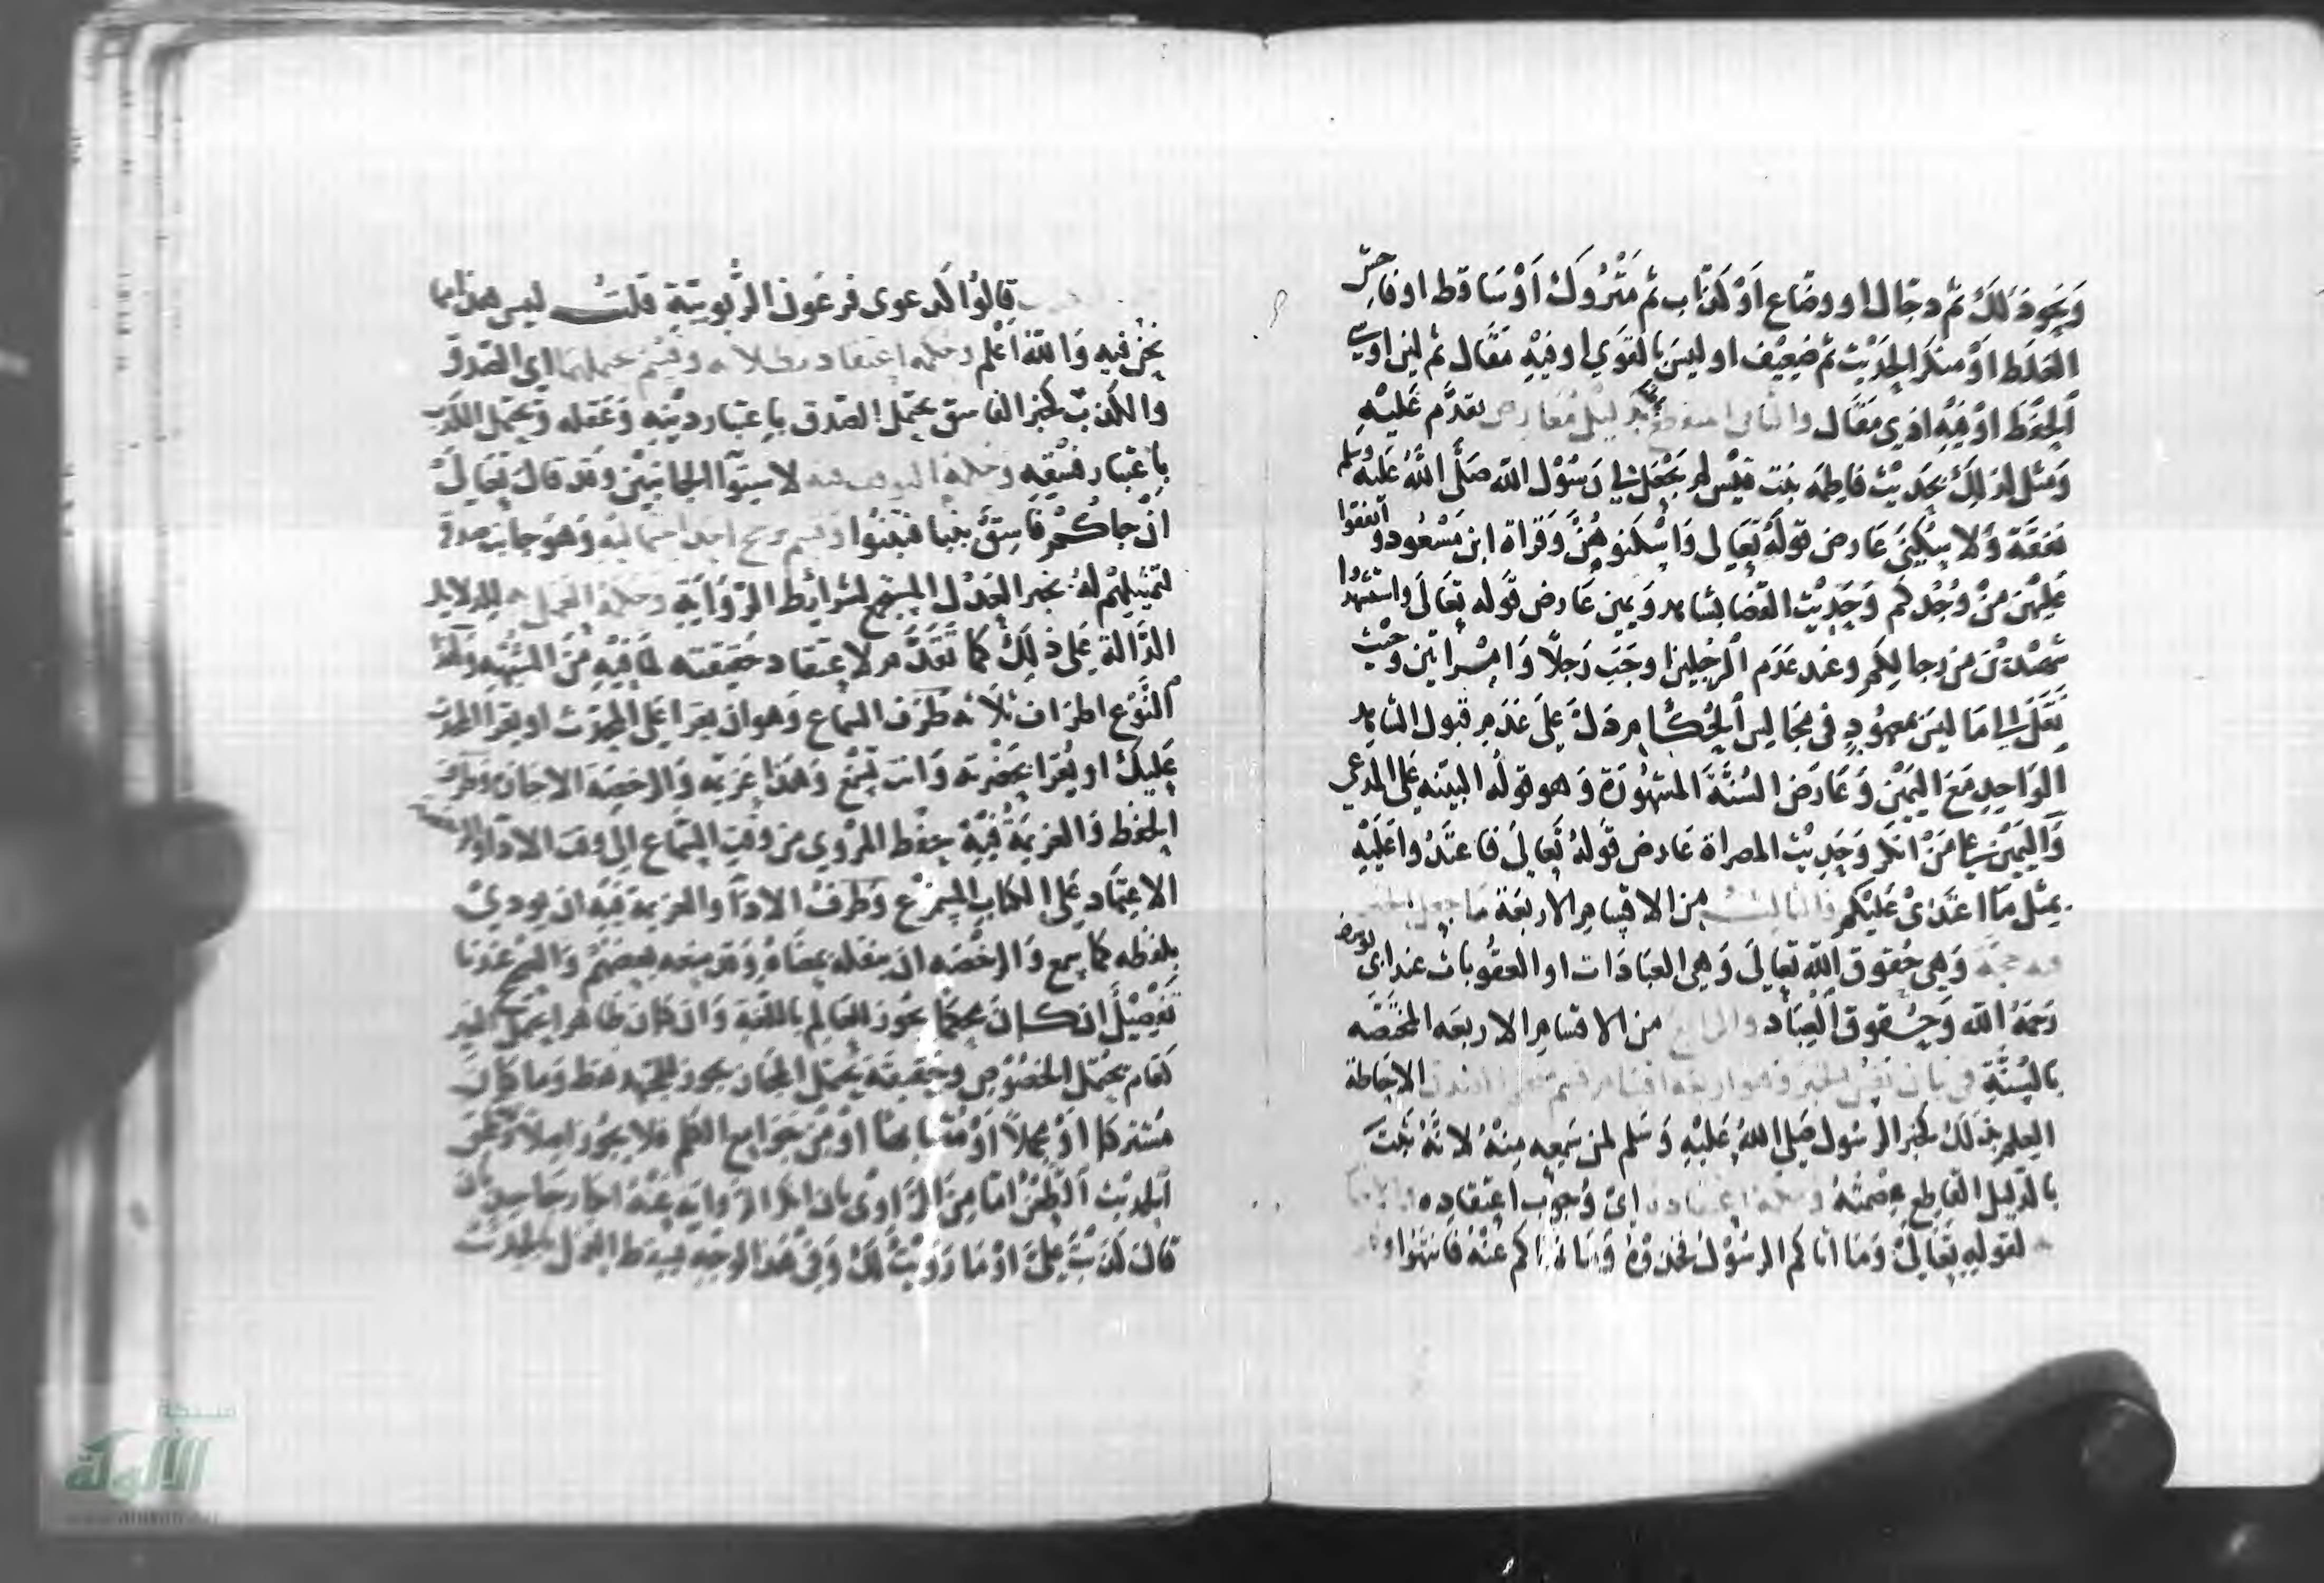 ونحو ذلك ثم دجال او وضاع او كذاب ثم متروك او ساقط او فاحش
الغلط او منكر الحديث ثم ضعيف او ليس بالقوي او فيه مقال ثم لين او سيئ
الحفظ او فيه ادنى مقال والثاني انقطع بدليل معارض تقدم عليه
ومثل لذلك بحديث فاطمة بنت قيس لم يجعل لي رسول الله صلى الله عليه وسلم
نفقة ولا سكنى عارض قوله تعالى واسكنوهن وقراة ابن مسعود وانفقوا
عليهن من وجدكم وحديث القضا بشاهد ويمين عارض قوله تعالى واستشهدوا
شهيدين من رجالكم وعند عدم الرجلين اوجب رجلا وامراتين وحيث
نقل الى ما ليس بمعهود في مجالس الحكام دل على عدم قبول الشاهد
الواحد مع اليمين وعارض السنة المشهورة وهو قوله البينة على المدعي
واليمين على من انكر وحديث المصراة عارض قوله تعالى فاعتدوا عليه
بمثل ما اعتدى عليكم والثالث من الاقسام الاربعة ما جعل الخبر
فيه حجة وهي حقوق الله تعالى وهي العبادات او العقوبات عند ابي يوسف
رحمه الله وحقوق العباد والرابع من الاقسام الاربعة المختصة
بالسنة في بيان نفس الخبر وهو اربعة اقسام قسم الاحاطة
العلم بذلك كخبر الرسول صلى الله عليه وسلم لمن سمعه منه لانه ثبت
بالدليل القاطع عصمته وحكمه اعتقاده اى وجوب اعتقاده
لقوله تعالى وما اتاكم الرسول فخذوه وما نهاكم عنه فانتهوا
قالوا كدعوى فرعون الربوبية قلت ليس هذا مما
نحن فيه والله اعلم وحكمه اعتقاد بطلانه وقسم يحتملهما اى الصدق
والكذب كخبر الفاسق يحتمل الصدق باعتبار دينه وعقله ويحتمل الكذب
باعتبار فسقه وحكمه التوقف فيه لاستوا الجانبين وقد قال تعالى
ان جاكم فاسق بنبا فتبينوا وقسم رجح احد احتماليه وهو جانب صدقه
لتمثيلهم له بخبر العدل المستجمع لشرايط الرواية وحكمه العمل به للدلايل
الدالة على ذلك كما تقدم لا اعتقاد حقيقته لما فيه من الشبهة ولهذا
النوع اطراف ثلاثة طرف السماع وهو ان يقرا على المحدث او يقرا المحدث
عليك او يقرا بحضرته وانت تسمع وهذا عزيمة والرخصة الاجازة وطرف
الحفظ والعزيمة فيه حفظ المروي من وقت السماع الى وقت الادا والرخصة
الاعتماد على الكتاب المسموع وطرف الادا والعزيمة فيه ان يودي
بلفظه كما سمع والرخصة ان ينقله بمعناه وقد منعه بعضهم والصحيح عندنا
تفصيل ان كان محكما يجوز للعالم باللغة وان كان ظاهرا يحتمل الغير
كعام يحتمل الخصوص وحقيقة يحتمل المجاز يجوز للمجتهد فقط وما كان
مشتركا او مجملا او متشابها او من جوامع الكلم فلا يجوز اصلا وطعن
الحديث الطعن اما من الراوي بان انكر الرواية عنه انكار جاحد بان
قال كذبت علي او ما رويت لك وفي هذا الوجه يسقط العمل بالحديث
شبكة
الألوكة